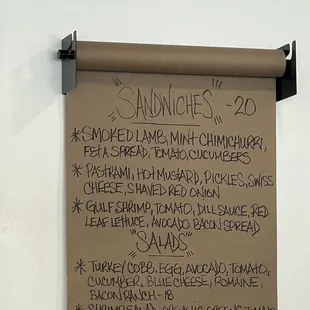 "SANDWICHES" - 20
* SMOKED LAMB, MINT CHIMICHURRI,
FETA SPREAD, TOMATO, CUCUMBERS
* PASTRAMI, HOT MUSTARD, PICKLES, SWISS
CHEESE, SHAVED RED ONION
* GULF SHRIMP, TOMATO, DILL SAUCE, RED
LEAF LETTUCE, AVOCADO BACON SPREAD
"SALADS"
* TURKEY COBB, EGG, AVOCADO, TOMATO,
CUCUMBER, BLUE CHEESE, ROMAINE,
BACON RANCH - 18
* SHRIMP SALAD,